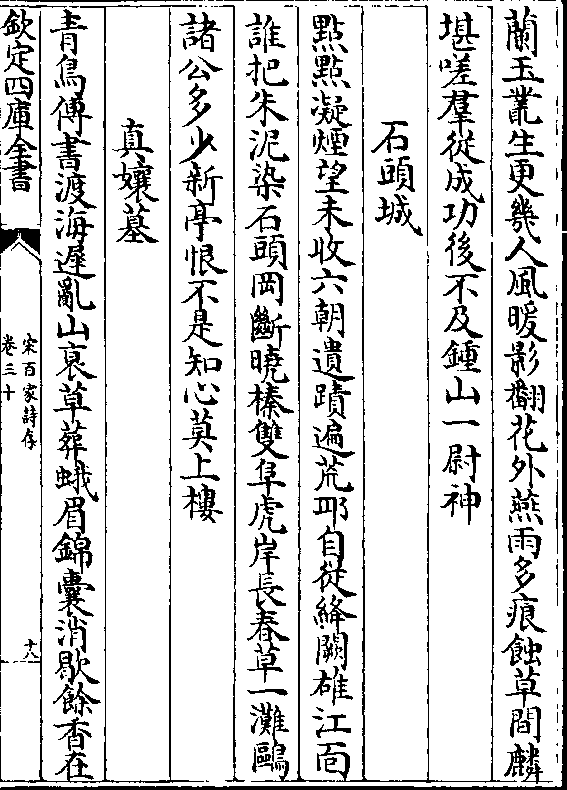 蘭玉叢生更幾人風暖影翻花外燕雨多痕蝕草間麟
堪嗟羣從成功後不及鍾山一尉神
石頭城
點點凝煙望未收六朝遺蹟遍荒邱自從絳闕雄江面
誰把朱泥染石頭岡斷曉榛雙阜虎岸長春草一灘鷗
諸公多少新亭恨不是知心莫上樓
真孃墓
青鳥傳書渡海遲亂山衰草葬蛾眉錦囊消歇餘香在
欽定四庫全書
宋百家詩存
卷三十
十八